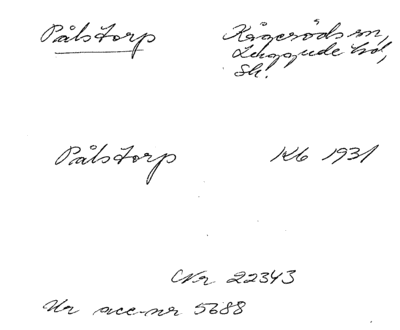 Pålstorp Kågeröds sn,
Luggude hd,
Sk.
Pålstorp Kb 1931
Nr 22343
Ur acc-nr 5688